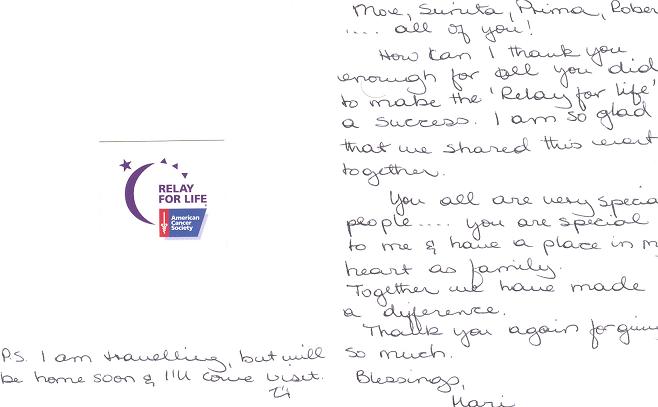 RELAY
FOR LIFE
American
Cancer
Society
P.S. I am travelling, but will
be home soon & I'll come visit.
More, Sunita, Prima, Rober
.... all of you!
How can I thank you
enough for all you did
to make the 'Relay for life'
a success. I am so glad
that we shared this event
together.
You all are very specia
people.... you are special
to me & have a place in m
heart as family.
Together we have made
a difference.
Thank you again for givin
so much.
Blessings,
Mari